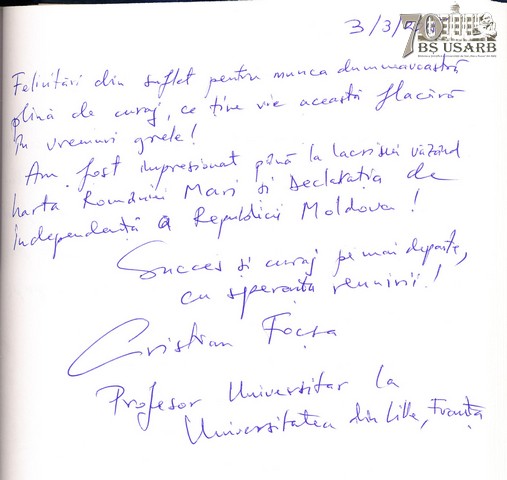 3/3/
70
BS USARB
Felicitări din suflet pentru munca dumneavoastră
plină de curaj, ce ține vie această flacără
în vremuri grele!
Am fost impresionat până la lacrimi văzând
harta României Mari și Declarația de
independență a Republicii Moldova!
Succes și curaj pe mai departe,
cu speranța reunirii!
Cristian Focșa
Profesor Universitar la
Universitatea din Lille, Franța